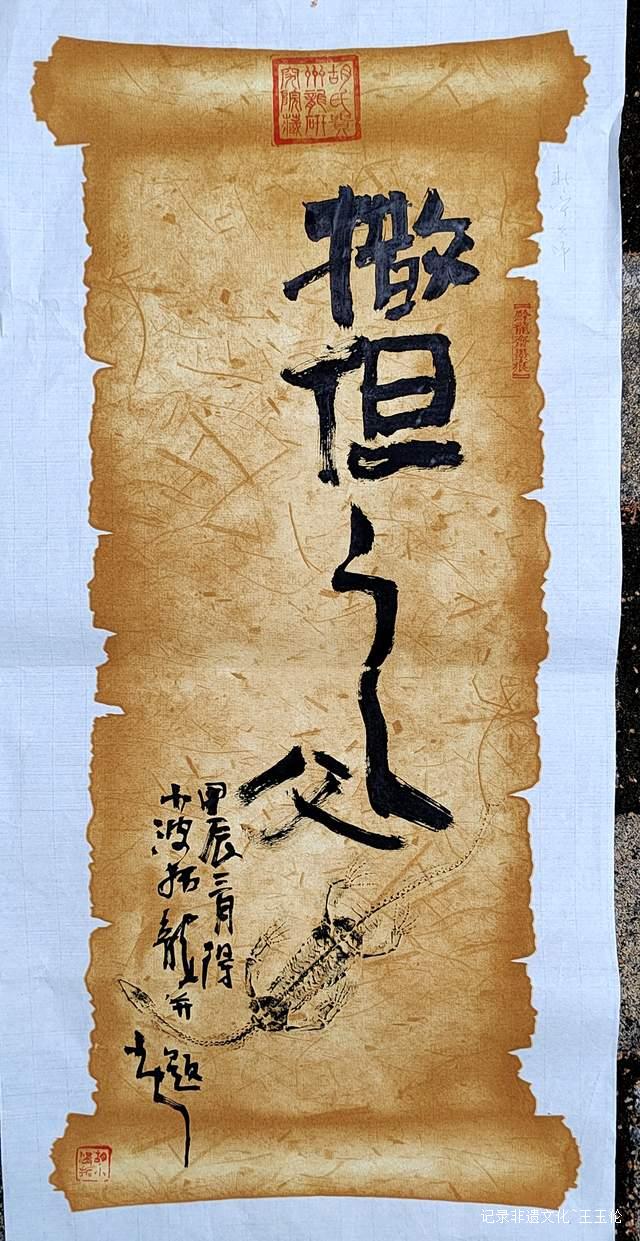 胡氏貴
州龍研
究院藏
黔龍齋墨痕
撒但之父
甲辰三月得
小波拓龍并
題
胡小
波拓
记录非遗文化~王玉伦